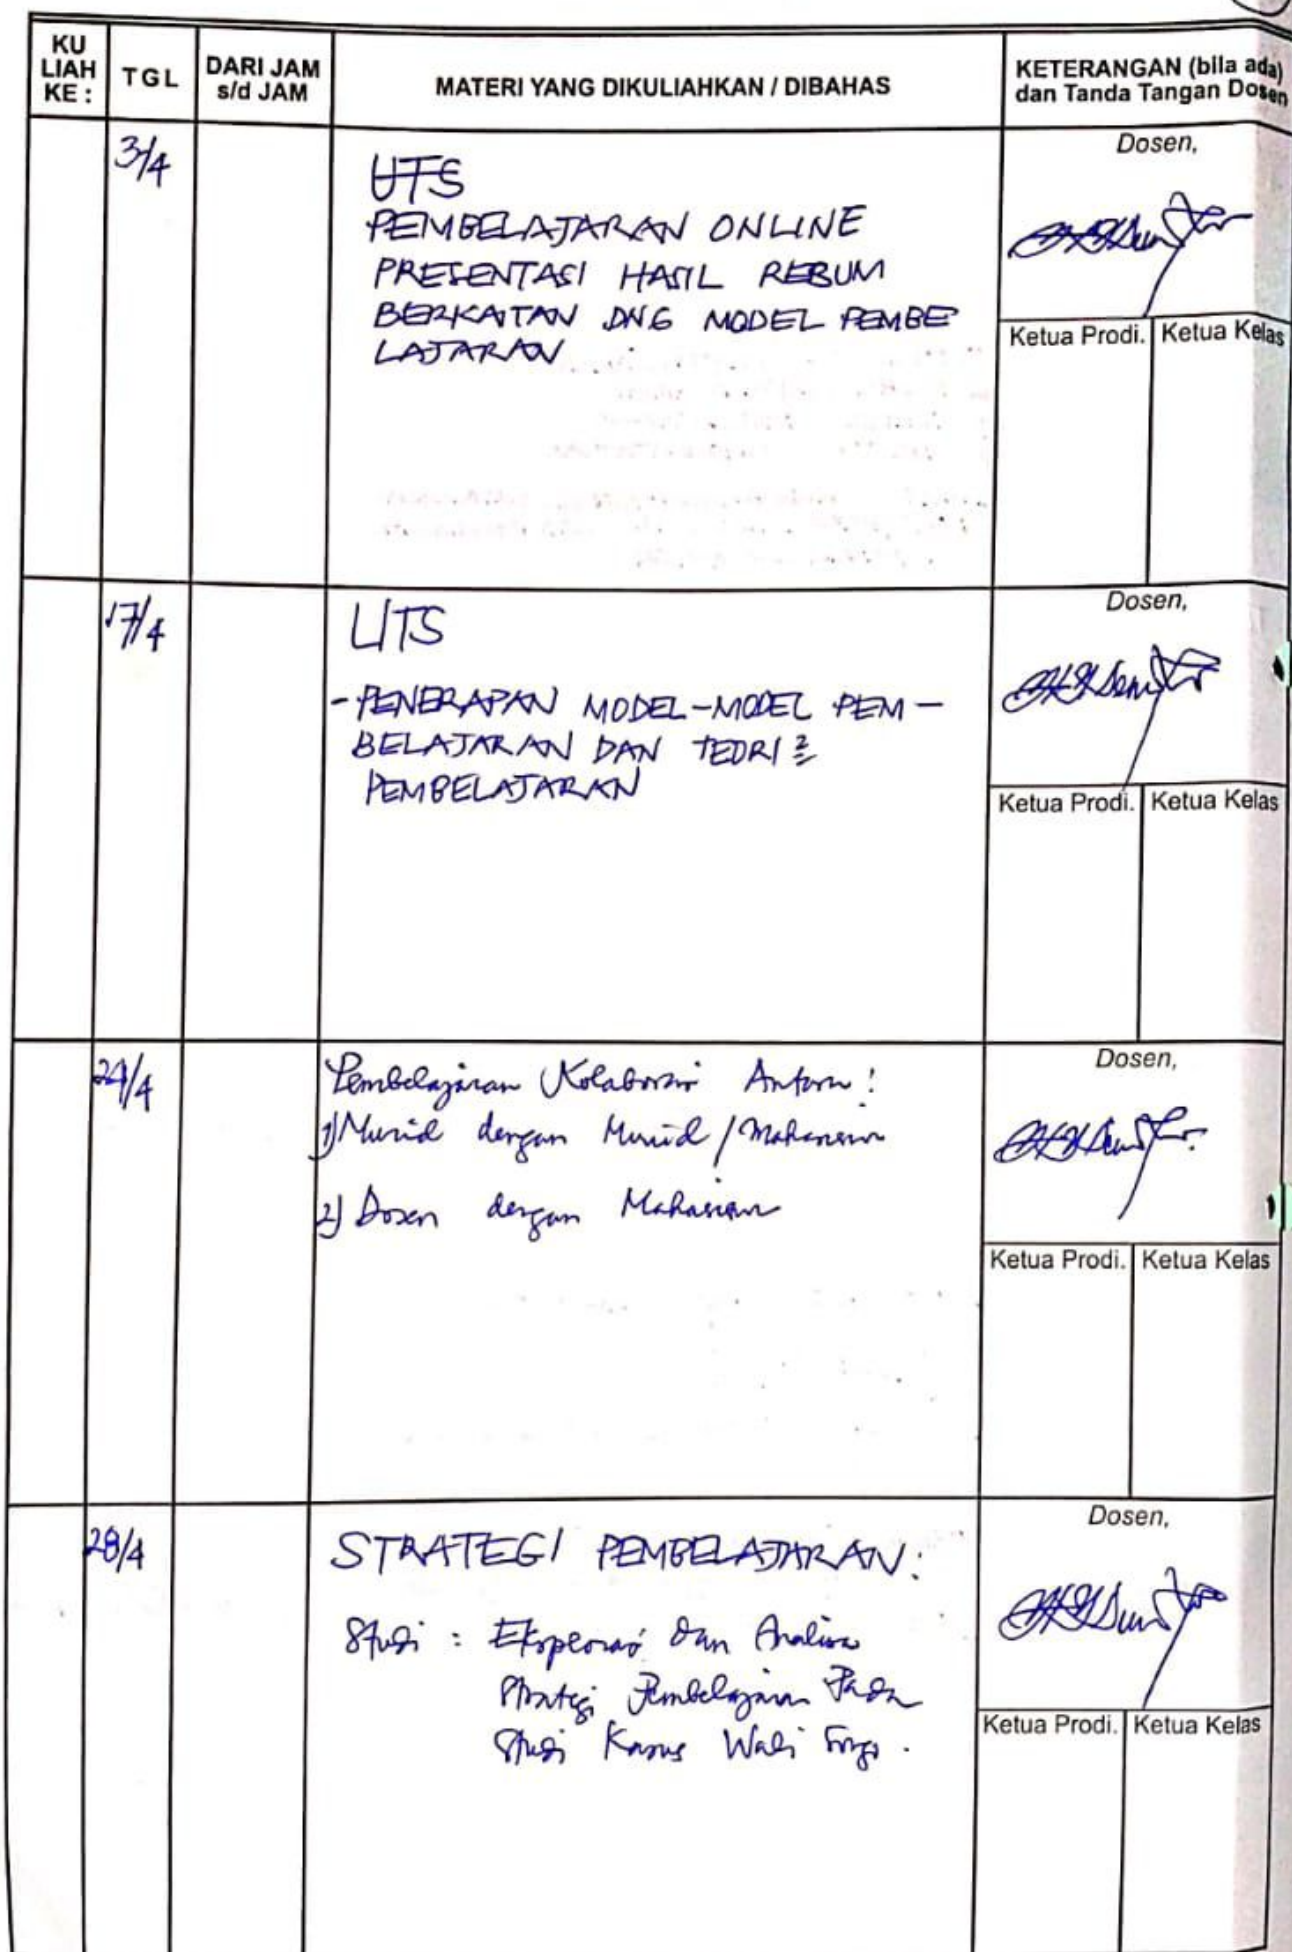 KU LIAH KE :
TGL
DARI JAM s/d JAM
MATERI YANG DIKULIAHKAN / DIBAHAS
KETERANGAN (bila ada) dan Tanda Tangan Dosen
3/4
UTS
PEMBELAJARAN ONLINE
PRESENTASI HASIL REBUM
BERKAITAN DNG MODEL PEMBE
LAJARAN
Dosen,
Ketua Prodi. Ketua Kelas
17/4
UTS
- PENERAPAN MODEL-MODEL PEM-
BELAJARAN DAN TEORI 2
PEMBELAJARAN
Dosen,
Ketua Prodi. Ketua Kelas
24/4
Pembelajaran Kolaborasi Antara :
1) Murid dengan Murid / Mahasiswa
2) Dosen dengan Mahasiswa
Dosen,
Ketua Prodi. Ketua Kelas
28/4
STRATEGI PEMBELAJARAN :
Studi : Eksplorasi dan Analisa
Strategi Pembelajaran Pada
Studi Kasus Wali Songo .
Dosen,
Ketua Prodi. Ketua Kelas